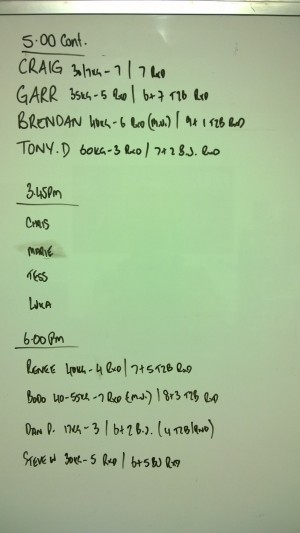 5.00 Cont.
CRAIG 30/17KG - 7 | 7 RXD
GARR 35KG - 5 RXD | 6+7 T2B RXD
BRENDAN 40KG - 6 RXD (M.U.) | 9+1 T2B RXD
TONY.D 60KG - 3 RXD | 7+2 B.J. RXD
3.45PM
CHRIS
MARIE
TESS
LUKA
6.00PM
RENEE 40KG - 4 RXD | 7+5 T2B RXD
BODO 40-55KG - 7 RXD (M.U.) | 8+3 T2B RXD
DAN P. 17KG - 3 | 6+2 B.J. (4 T2B/RND)
STEVE W 30KG - 5 RXD | 6+5 BJ RXD